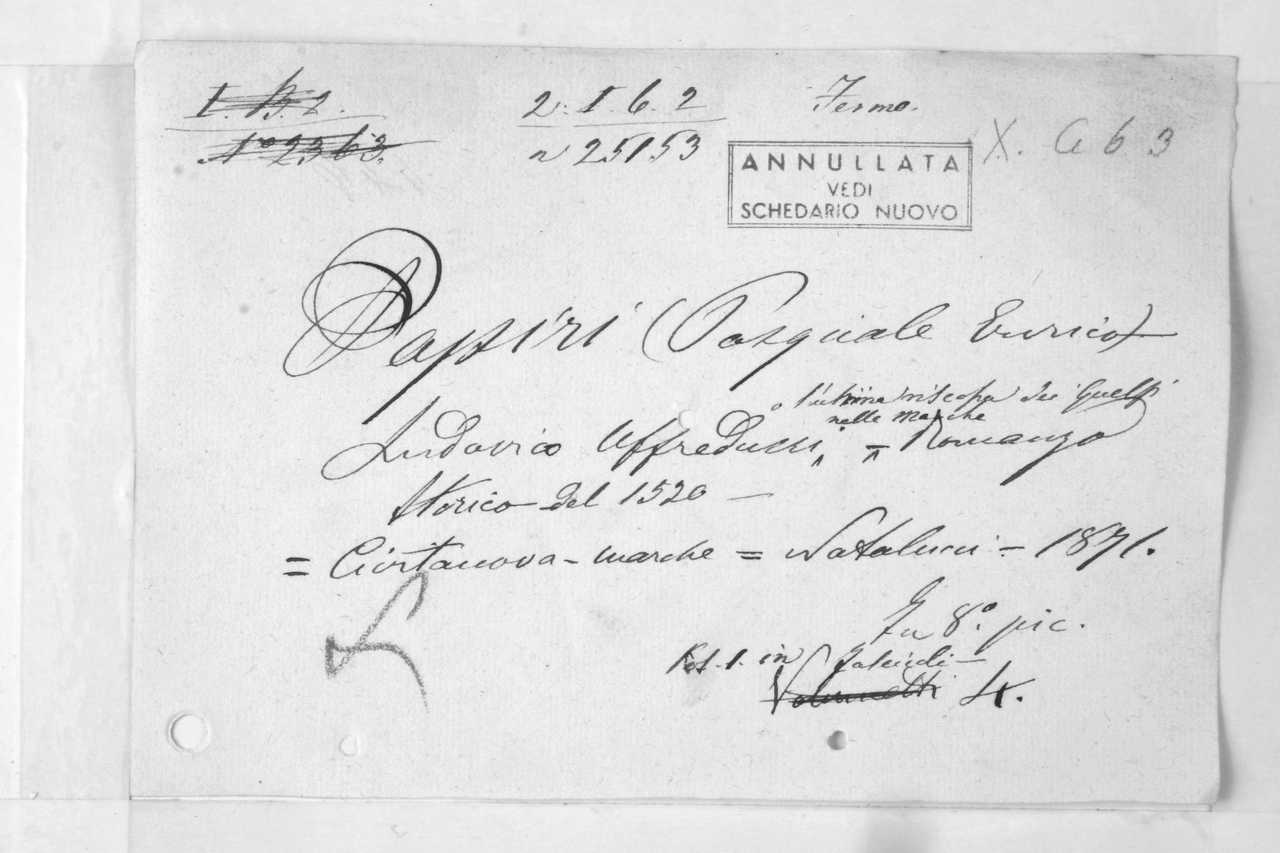 I. B. 2. 2. I. 6. 2 Fermo.
N° 2363. n 25153 X. a 6 3
ANNULLATA
VEDI
SCHEDARIO NUOVO
Papiri (Pasquale Enrico)
o l'ultima riscossa dei Guelfi
nelle Marche
Ludovico Uffreducci = Romanzo
Storico del 1520 —
= Civitanova - marche = Natalucci - 1871.
In 8.° pic.
Vol. 1. in fascicoli —
Volumetti 4.